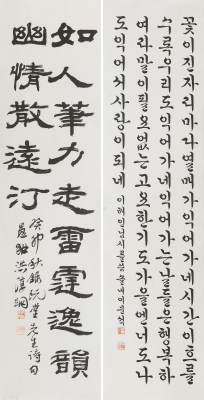 꽃이진자리마다열매가익어가네시간이흐를
수록우리도익어가네익어가는날들은행복하
여라말이필요없는고요한기도가을엔너도나
도익어서사랑이되네
이해인님시
如人筆力走雷霆逸韻
幽情散遠汀
癸卯秋錄阮堂先生詩句